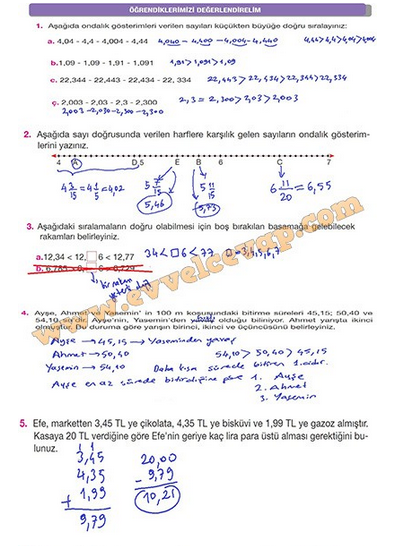 ÖĞRENDİKLERİMİZİ DEĞERLENDİRELİM
1. Aşağıda ondalık gösterimleri verilen sayıları küçükten büyüğe doğru sıralayınız:
a. 4,04 - 4,4 - 4,004 - 4,44 4,040 - 4,400 - 4,004 - 4,440 4,44>4,4>4,04>4,004
b. 1,09 - 1,09 - 1,91 - 1,091 1,91>1,091>1,09
c. 22,344 - 22,443 - 22,434 - 22, 334 22,443>22,434>22,344>22,334
ç. 2,003 - 2,03 - 2,3 - 2,300 2,3=2,300>2,03>2,003
2,003 - 2,030 - 2,300 - 2,300
2. Aşağıda sayı doğrusunda verilen harflere karşılık gelen sayıların ondalık gösterim-
lerini yazınız.
4 A D 5 E B 6 C 7
5,46
5,73
6 11/20 = 6,55
3. Aşağıdaki sıralamaların doğru olabilmesi için boş bırakılan basamağa gelebilecek
rakamları belirleyiniz.
a. 12,34 < 12, 6 < 12,77 34 < 6 < 77
4. Ayşe, Ahmet ve Yasemin' in 100 m koşusundaki bitirme süreleri 45,15; 50,40 ve
54,10 sn'dir. Ayşe'nin, Yasemin'den yavaş olduğu biliniyor. Ahmet yarışta ikinci
olmuştur. Bu duruma göre yarışın birinci, ikinci ve üçüncüsünü belirleyiniz.
Ayşe → 45,15 → Yaseminden yavaş
Ahmet → 50,40 54,10 > 50,40 > 45,15
Yasemin → 54,10 Daha kısa sürede bitiren 1.cidir.
Ayşe en az sürede bitirdiğine göre 1. Ayşe
2. Ahmet
3. Yasemin
www.evvelcevap.com
5. Efe, marketten 3,45 TL ye çikolata, 4,35 TL ye bisküvi ve 1,99 TL ye gazoz almıştır.
Kasaya 20 TL verdiğine göre Efe'nin geriye kaç lira para üstü alması gerektiğini bu-
lunuz.
1 1
3,45 20,00
4,35 - 9,79
+ 1,99 10,21
9,79